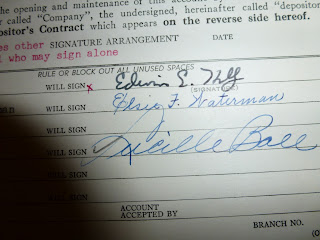 opening and maintenance of this account by
after called "Company", the undersigned, hereinafter called "depositor
positor's Contract which appears on the reverse side hereof.
es other SIGNATURE ARRANGEMENT DATE
l who may sign alone
RULE OR BLOCK OUT ALL UNUSED SPACES
WILL SIGN x Edwin E.
(SIGNATURE)
WILL SIGN Elsie F. Waterman
WILL SIGN
WILL SIGN Lucille Ball
WILL SIGN
WILL SIGN
ACCOUNT
ACCEPTED BY
BRANCH NO.